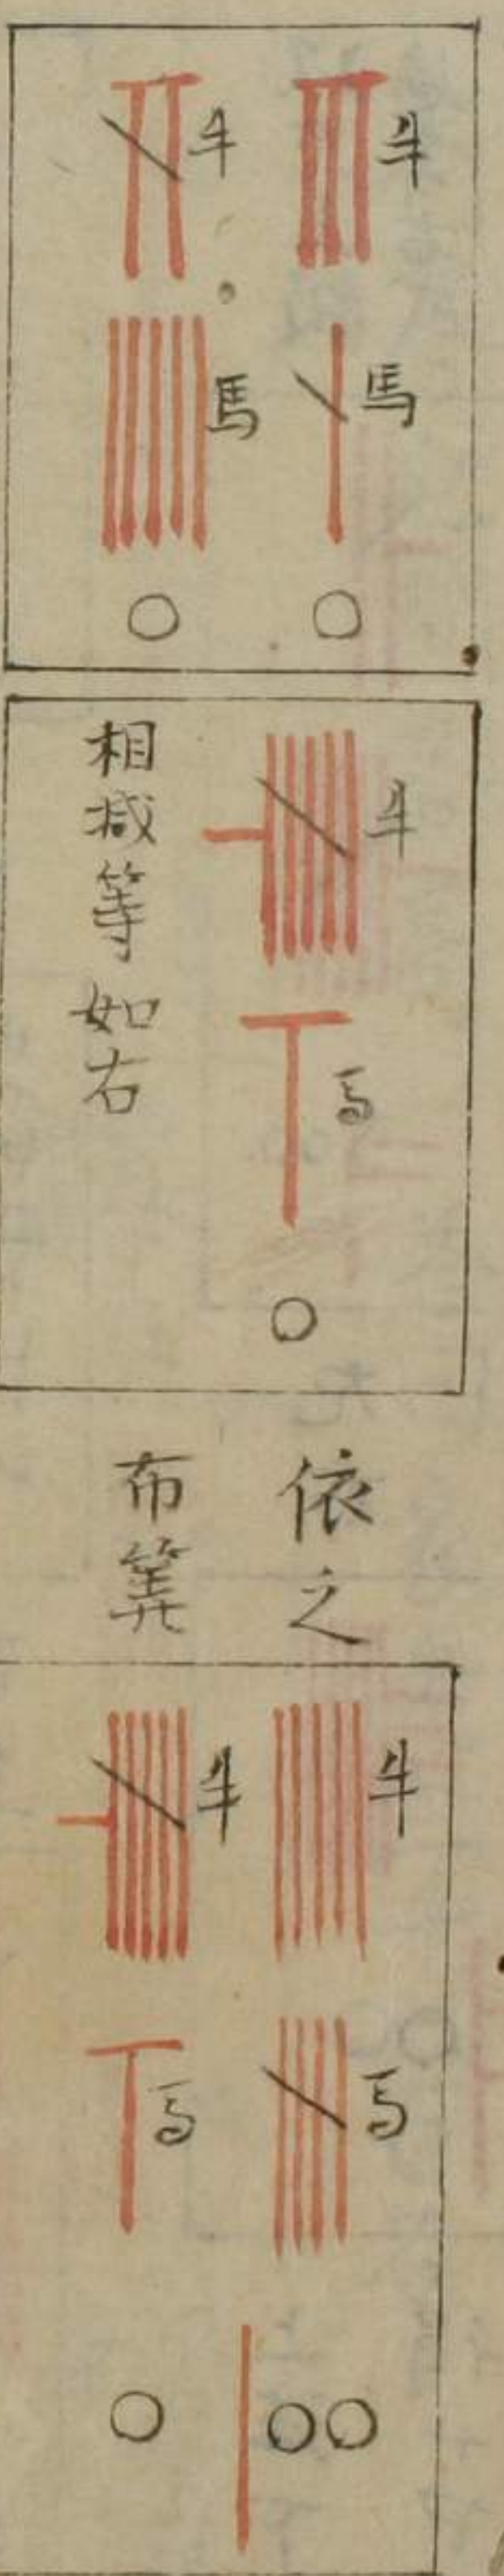 牛 馬 ○
牛 馬 ○
牛 馬 ○
相減等如右
依之
布筭
牛 馬 ○○
牛 馬 ○